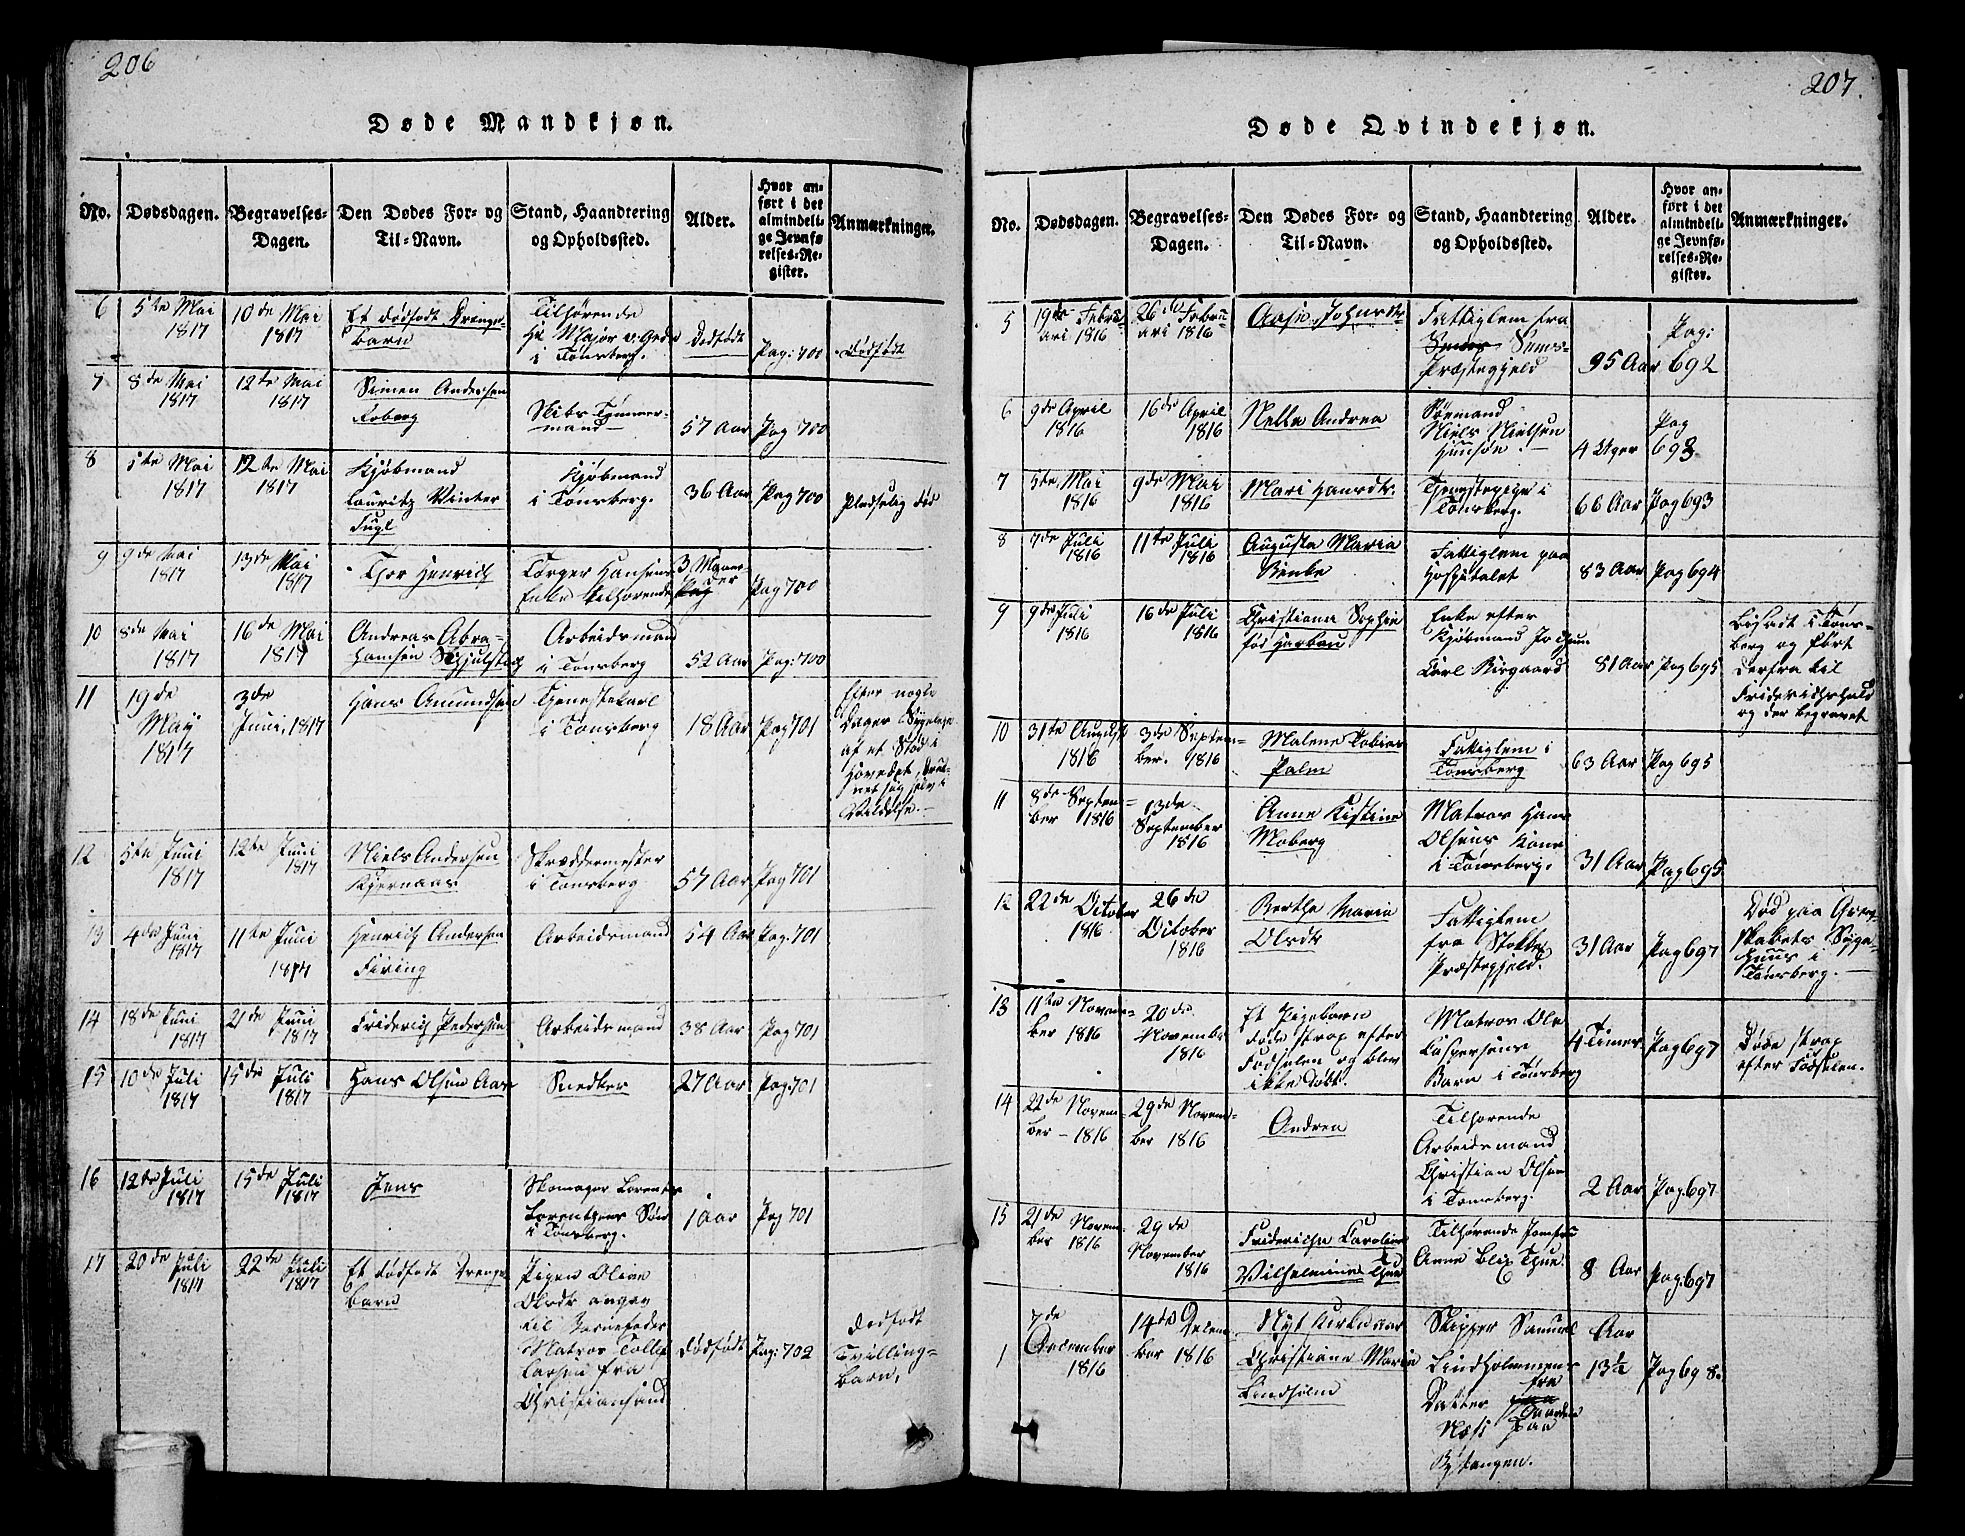 206
Døde Mandkjøn.
No.
Dødsdagen.
Begravelses-
Dagen.
Den Dødes For- og
Til-Navn.
Stand, Haandtering
og Opholdssted.
Alder.
Hvor an-
ført i det
almindeli-
ge Jevnfø-
relses-Re-
gister.
Anmærkninger.
6
5te Mai
1817
10de Mai
1817
Et dødfødt Drenge-
barn
Tilhørende
Hr Major
i Tønsberg.
Dødfødt
Pag: 700
Dødfødt
7
8de Mai
1817
12te Mai
1817
Simen Andersen
Skibs Tømmer-
mand
57 Aar
Pag 700
8
5te Mai
1817
12te Mai
1817
Kjøbmand
Lauritz Winter
Fugl
Kjøbmand
i Tønsberg.
36 Aar
Pag 700
Pludselig død
9
9de Mai
1817
13de Mai
1817
Thor Henrich
Torger Hansens
Enke tilhørende
3 Maane-
der
Pag 700
10
8de Mai
1817
16de Mai
1817
Andreas Abra-
hamsen
Arbeidsmand
i Tønsberg
52 Aar
Pag: 700
11
19de
May
1817
3de
Juni, 1817
Hans Amundsen
Tjenestekarl
i Tønsberg
18 Aar
Pag 701
Efter nogle
Dages Sygeleie
af et Stød i
Hovedet,
12
5te Juni
1817
12te Juni
1817
Niels Andersen
Kjernaas
Skræddermester
i Tønsberg
57 Aar
Pag 701
13
4de Juni
1817
11te Juni
1817
Henrich Andersen
Firing
Arbeidsmand
54 Aar
Pag: 701
14
18de Juni
1817
21de Juni
1817
Friderich Pedersen
Arbeidsmand
38 Aar
Pag: 701
15
10de Juli
1817
15de Juli
1817
Hans Olsen Aas
Snedker
27 Aar
Pag: 701
16
12te Juli
1817
15de Juli
1817
Jens
Skomager Lorents
Lorentzens Søn
i Tønsberg.
1 Aar
Pag 701
17
20de Juli
1817
22de Juli
1817
Et dødfødt Drenge
barn
Pigen Olive
Olsdtr angav
til Barnefader
Matros Tollef
Larsen fra
Christiansand
dødfødt
Pag: 702
dødfødt
Tvilling-
barn.
207.
Døde Qvindekjøn.
No.
Dødsdagen.
Begravelses-
Dagen.
Den Dødes For- og
Til-Navn.
Stand, Haandtering
og Opholdssted.
Alder.
Hvor an-
ført i det
almindeli-
ge Jevnfø-
relses-Re-
gister.
Anmærkninger.
5
19de Febru-
ari 1816
26de Febru-
ari 1816
Aase Johnsdtr
Fattiglem fra
Sems-
Præstegjeld
95 Aar
Pag:
692
6
9de April
1816
16de April
1816
Nelle Andrea
Søemand
Niels Nielsen
4 Uger
Pag
693
7
5te Mai
1816
9de Mai
1816
Mari Hansdtr.
Tjenestepige i
Tønsberg.
66 Aar
Pag 693
8
7de Juli
1816
11te Juli
1816
Augusta Maria
Benke
Fattiglem paa
Hospitalet
83 Aar
Pag 694
9
9de Juli
1816
16de Juli
1816
Christiana Sophie
fød
Enke efter
Kjøbmand Jochum
Carl Birgaard
81 Aar
Pag 695
Bisadt i Tøns-
berg og ført
derfra til
Friderichshald
og der begravet
10
31te August
1816
3de Septem-
ber. 1816
Malene Tobias
Palm
Fattiglem i
Tønsberg
63 Aar
Pag 695
11
8de Septem-
ber 1816
13de
September
1816
Anne Kistine
Moberg
Matros Hans
Olsens Kone
i Tønsberg.
31 Aar
Pag 695
12
22de October
1816
26de
October
1816
Berthe Maria
Olsdtr
Fattiglem
fra Stokke
Præstegjeld.
31 Aar
Pag 697
Død paa Grev-
skabets Syge-
Huus i
Tønsberg.
13
11te Novem-
ber 1816
20de
November
1816
Et Pigebarn
døde strax efter
Fødselen og blev
ikke døbt.
Matros Ole
Caspersens
Barn i Tønsberg
4 Timer
Pag 697
Døde strax
efter Fødselen.
14
22de Novem-
ber - 1816
29de Novem-
ber 1816
Andrea
Tilhørende
Arbeidsmand
Christian Olsen
i Tønsberg.
2 Aar
Pag: 697
15
21de Novem-
ber 1816
29de
November
1816
Friderikke Caroline
Vilhelmine Thue
Tilhørende Jomfru
Anne Blix Thue.
8 Aar
Pag: 697
1
7de
December
1816
14de Decem-
ber 1816
Nyt Kirkeaar
Christiane Marie
Lindholm
Skipper Samuel
Lindholmens
Datter fra
Gaarden
Næss paa
Bøtangen.
Aar
13½
Pag 698.